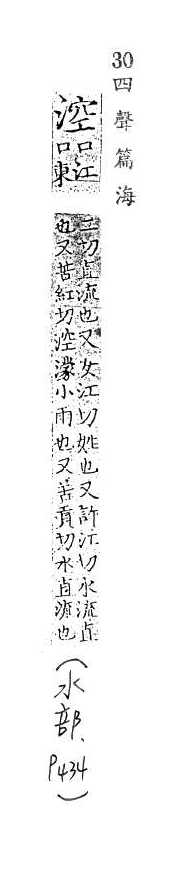 30 四聲篇海
涳
口江
口東
二切直流也又女江切姓也又許江切水流直
也又苦紅切涳濛小雨也又苦貢切水直源也
(水部、P434)